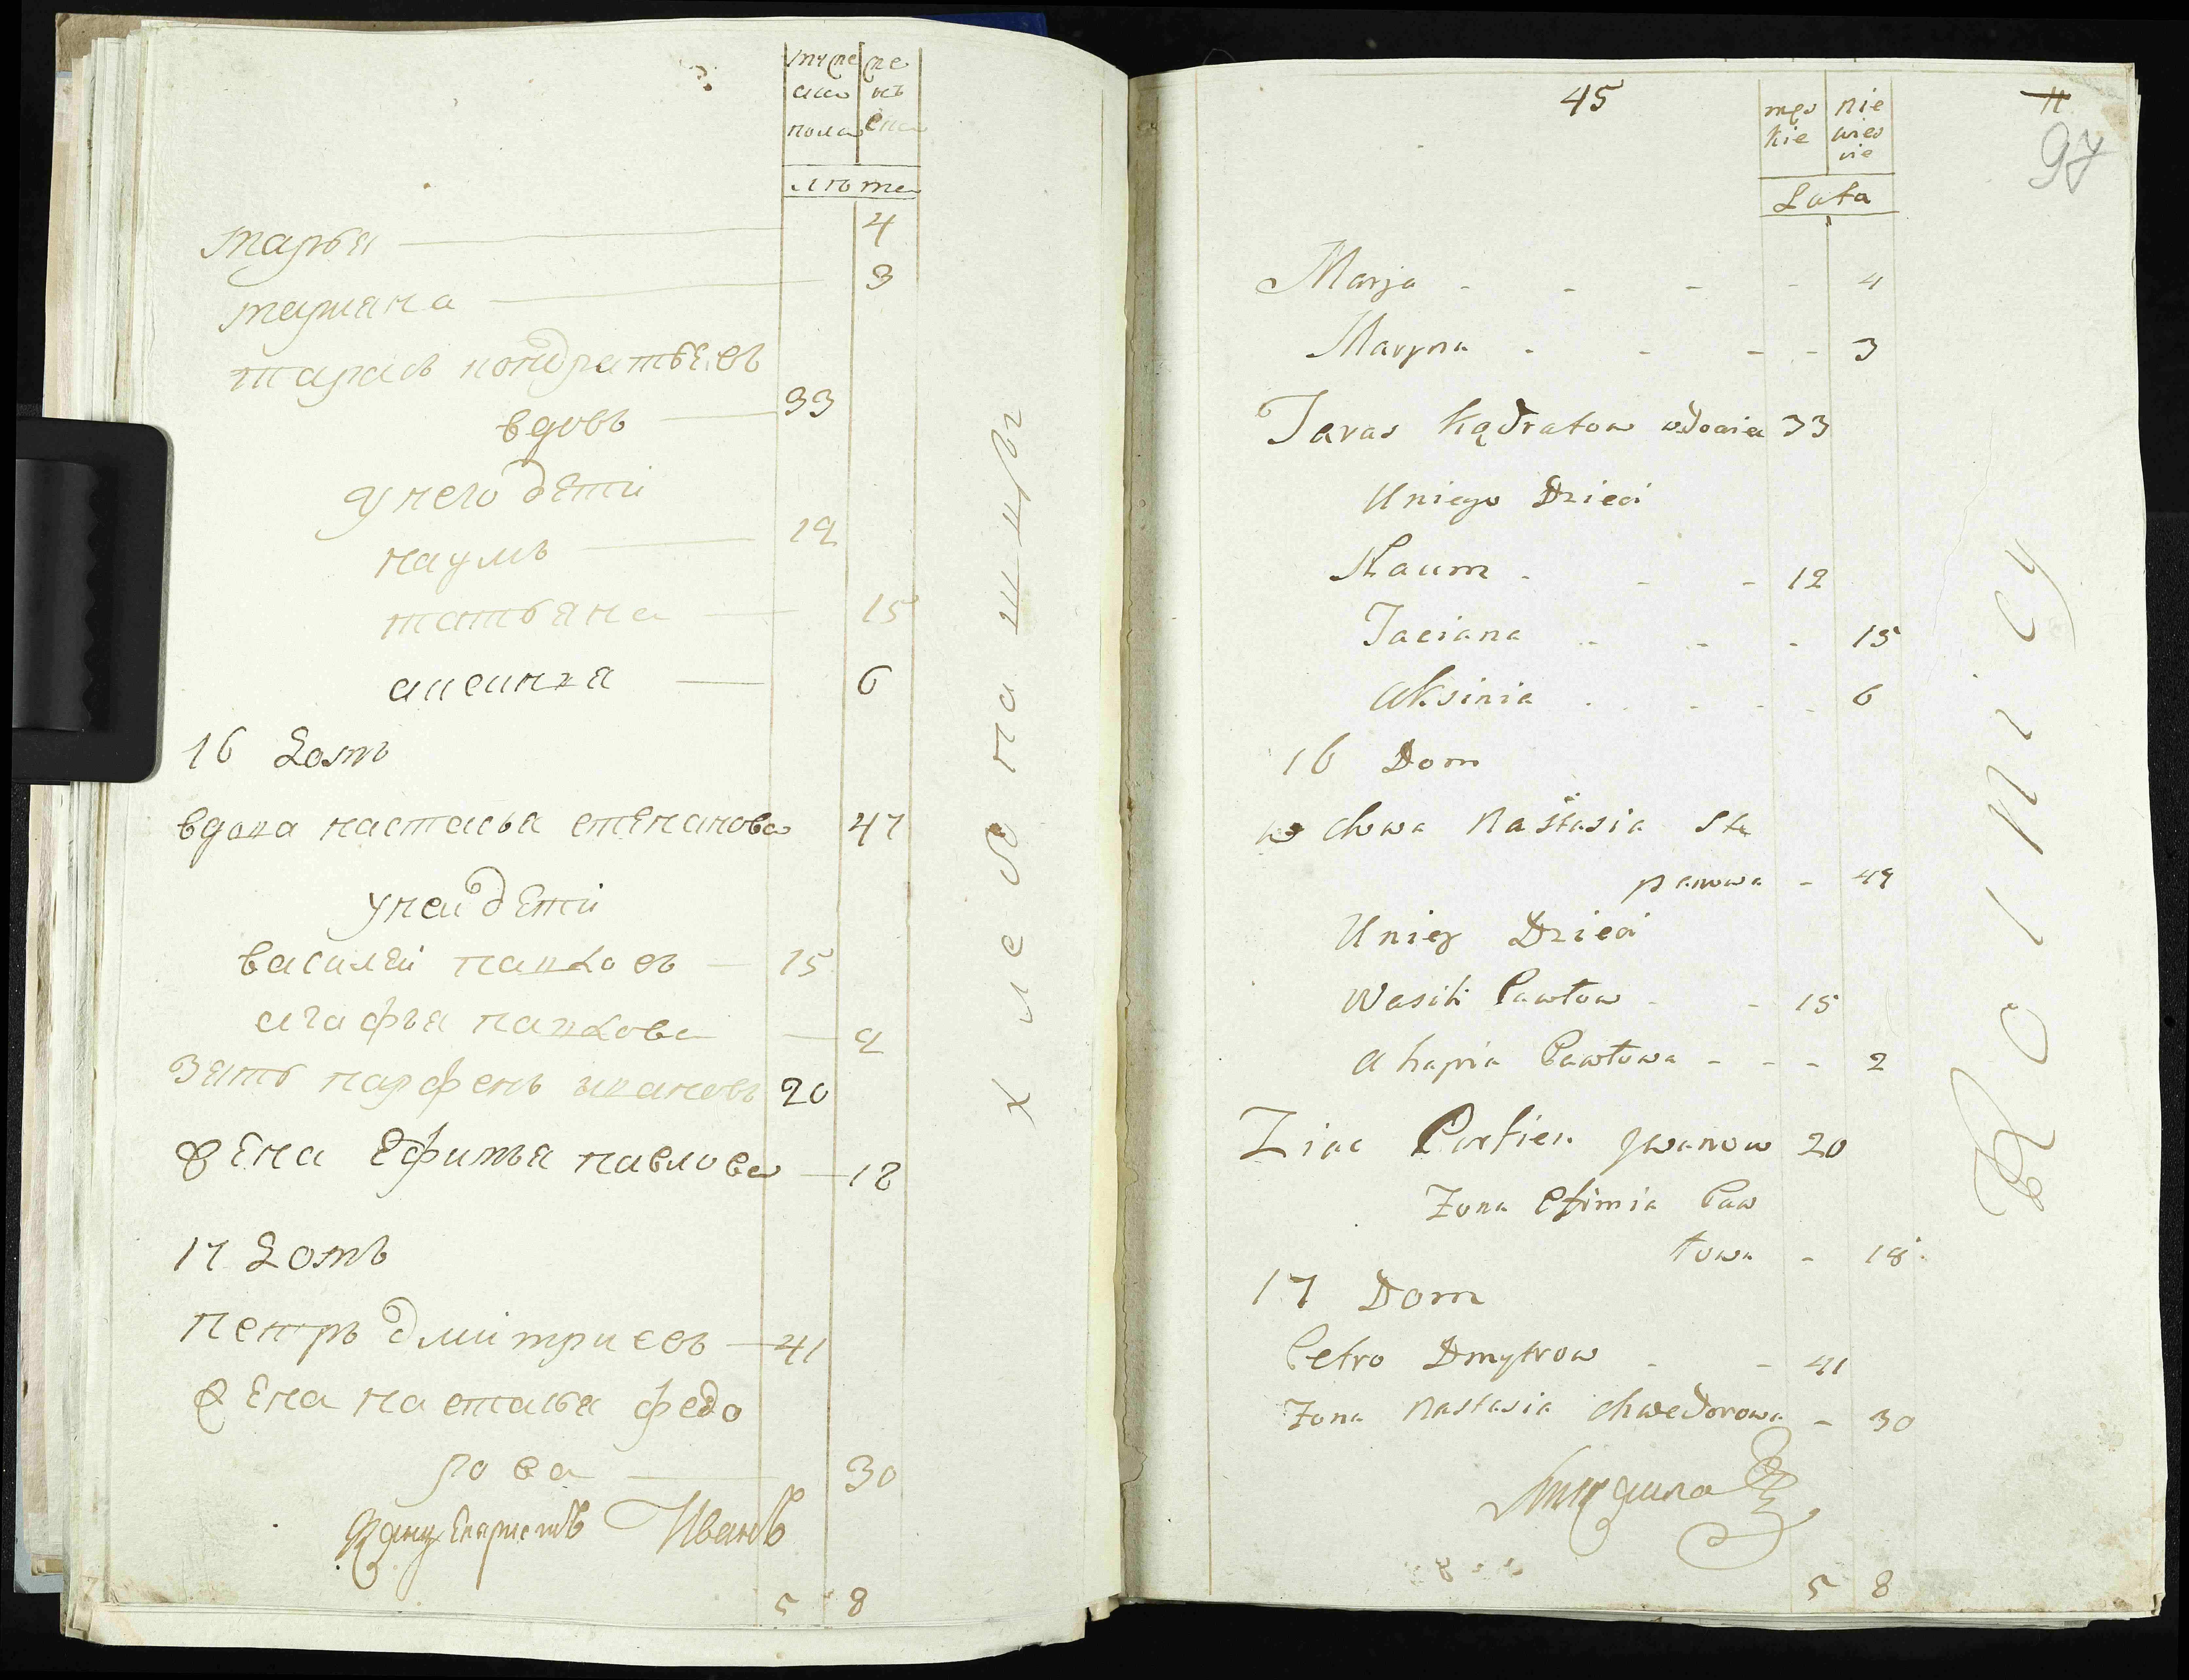 муже
ска
пола
же
нс
ска
лѣта
марья 4
марина 3
тарасъ кондратьевъ
вдовъ 33
у него дети
наумъ 12
татьяна 15
аксиния 6
16 Домъ
вдова настасья степанова 47
у неи дети
василеи павловъ 15
агафья павлова 2
Зять парфенъ ивановъ 20
жена Ефимья павлова 18
17 Домъ
петръ дмитриевъ 41
жена настасья федо
рова 30
Иванъ
5 8
хлебопашцы
45
męs
kie
nie
wies
cie
Lata
11
97
Marja - - - - 4
Maryna - - - - 3
Taras Kądratow wdowiec 33
U niego Dzieci
Naum - - - 12
Taciana - - - 15
Aksinia - - - - 6
16 Dom
wdowa Nastasia Ste
panowa - 47
U niey Dzieci
Wasili Pawłow - - 15
Ahapia Pawłowa - - - 2
Ziac Parfien Jwanow 20
Zona Efimia Paw
łowa - 18
17 Dom
Petro Dmytrow - - 41
Zona Nastasia Chwedorowa - 30
5 8
Rolnicy